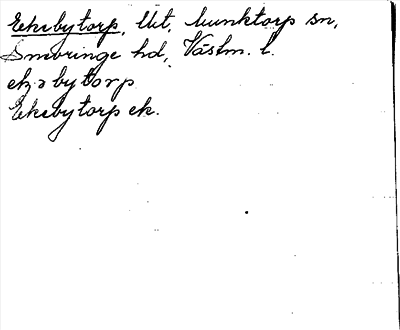 Ekebytorp, lht, Munktorp sn,
Snevringe hd, Västm. l.
ekɜbytorp
Ekebytorp ek.